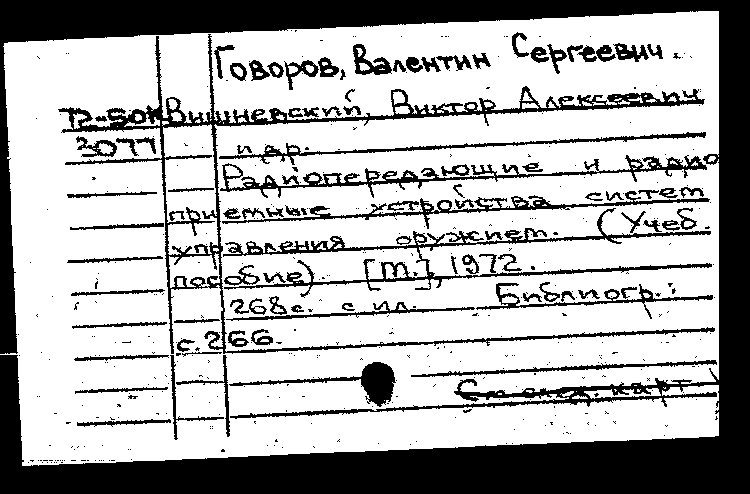 Говоров, Валентин Сергеевич.
72-50К Вишневский, Виктор Алексеевич
3077 и др.
Радиопередающие и радио
приемные устройства систем
управления оружием. (Учеб.
пособие). [М.], 1972.
268с. с ил. Библиогр.:
с. 266.
См след. карт